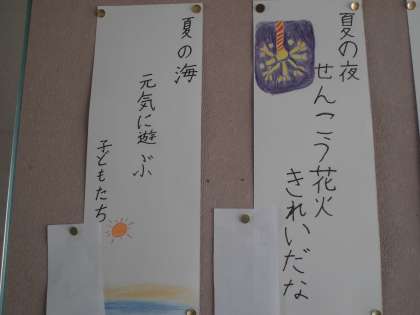 夏の夜
せんこう花火
きれいだな
夏の海
元気に遊ぶ
子どもたち